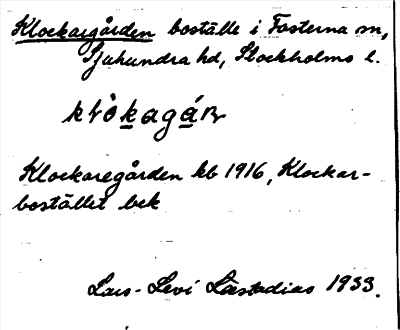 Klockargården boställe i Fasterna sn,
Sjuhundra hd, Stockholms l.
klòkagáɳ
Klockaregården kb 1916, Klockar-
bostället bek
Lars-Levi Læstadius 1933.